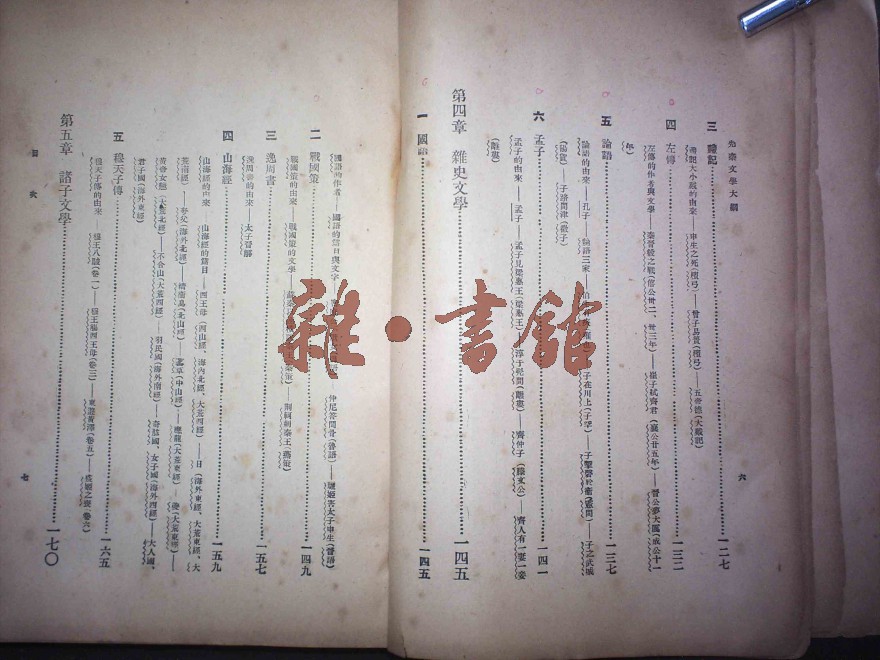 先秦文學大綱
六
三 禮記
一二七
禮記大小戴的由來——申生之死(檀弓)——曾子易簀(檀弓)——五帝德(大戴記)
四 左傳
一三二
左傳的作者與文學——秦晉殽之戰(僖公卅二、卅三年)——崔子弒齊君(襄公廿五年)——晉公夢大厲(成公十一
年)
五 論語
一三七
論語的由來——孔子——論語三家
子在川上(子罕)——子擊磬於衛(憲問)——子之武城
(陽貨)——子路問津(微子)
六 孟子
一四一
孟子的由來——孟子——孟子見梁惠王(梁惠王)——淳于髡問(離婁)——齊仲子(滕文公)——齊人有一妻一妾
(離婁)
第四章 雜史文學
一四五
一 國語
一四五
國語的作者——國語的篇目與文字
仲尼答問骨(魯語)——驪姬害太子申生(晉語)
二 戰國策
一四九
戰國策的由來——戰國策的文學
荊軻刺秦王(燕策)
三 逸周書
一五七
逸周書的由來——太子晉解
四 山海經
一五九
山海經的由來——山海經的篇目——西王母(西山經、海內北經、大荒西經)——日(海外東經、大荒東經、大
荒南經)——夸父(海外北經)——精衛鳥(北山經)——䔄草(中山經)——應龍(大荒東經)——夔(大荒東經)——
黃帝女魃(大荒北經)——不合山(大荒西經)——羽民國(海外南經)——奇肱國、女子國(海外西經)——大人國、
君子國(海外東經)
五 穆天子傳
一六五
穆天子傳的由來——穆王八駿(卷一)——穆王觴西王母(卷三)——東遊黃澤(卷五)——盛姬之喪(卷六)
第五章 諸子文學
一七〇
目次
七
雜·書館